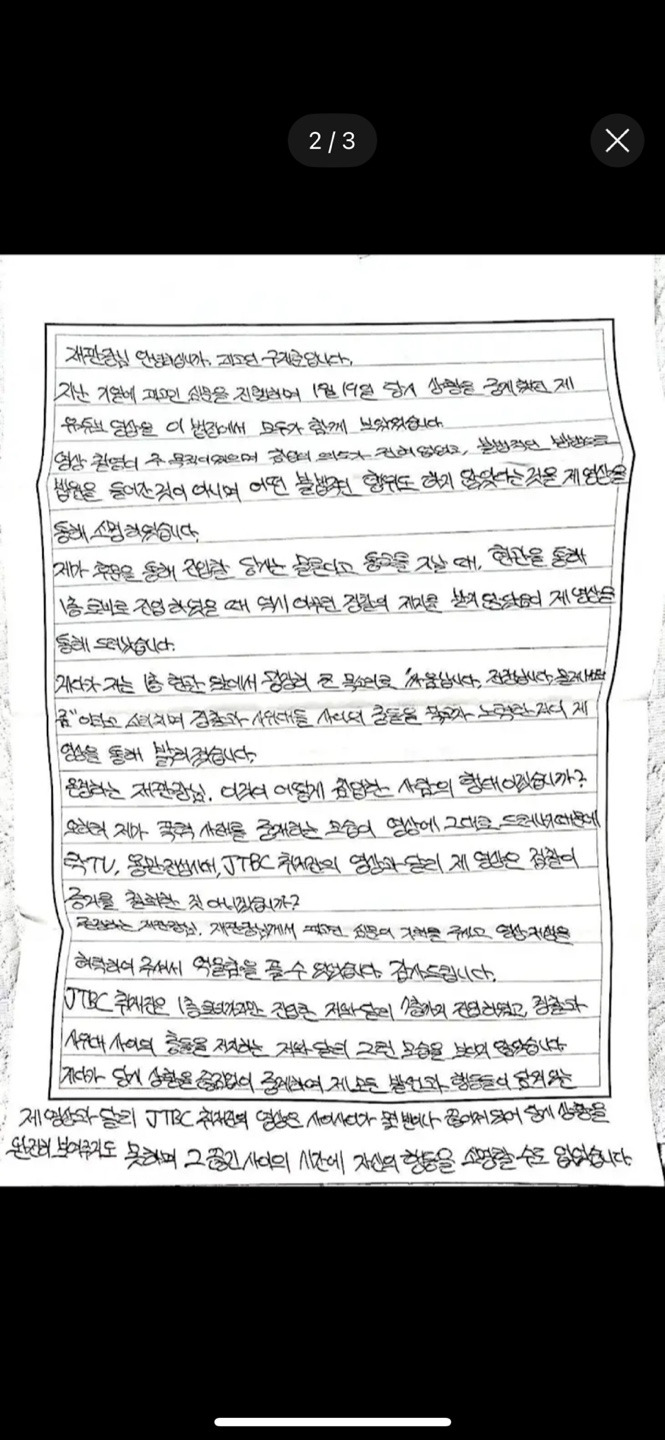 2 / 3
재판장님 안녕하십니까. 피고인 구자로입니다.
지난 기일에 피고인 심문을 진행하며 1월 19일 당시 상황을 중계하던 제
유튜브 영상을 이 법정에서 모두가 함께 보았었습니다.
영상 촬영이 주 목적이었으며 의도가 전혀 없었고, 불법적인 방법으로
법원을 들어간 것이 아니며 어떤 불법적인 행위도 하지 않았다는 것을 제 영상을
통해 소명하였습니다.
제가 후문을 통해 진입한 당시는 물론이고 통로를 지날 때, 현관을 통해
1층 로비로 진입하였을 때 역시 아무런 경찰의 제지를 받지 않았음이 제 영상을
통해 드러났습니다.
게다가 저는 1층 현관 앞에서 굉장히 큰 목소리로
이라고 소리치며 경찰과 시위대들 사이의 충돌을 막고자 노력한 것이 제
영상을 통해 밝혀졌습니다.
존경하는 재판장님. 이것이 어떻게 흥분한 사람의 행태이겠습니까?
오히려 제가 폭력 사태를 중재하는 모습이 영상에 그대로 드러났기때문에
락TV, JTBC 취재진의 영상과 달리 제 영상은 검찰이
증거를 철회한 것 아니겠습니까?
존경하는 재판장님. 재판장님께서 피고인 심문의 기회를 주시고 영상 시청을
허락하여 주셔서 억울함을 풀 수 있었습니다. 감사드립니다.
JTBC 취재진은 1층 로비까지만 진입한 저와 달리 진입하였고, 경찰과
시위대 사이의 충돌을 저지하는 저와 달리 그런 모습을 보이지 않았습니다.
게다가 당시 상황을 중계하여 제 모든 발언과 행동들이 담겨있는
제 영상과 달리 JTBC 취재진의 영상은 사이사이가 몇 번이나 끊어져 있어 당시 상황을
완전히 보여주지도 못하며 그 공간 사이의 시간에 자신의 행동을 소명할 수도 없었습니다.